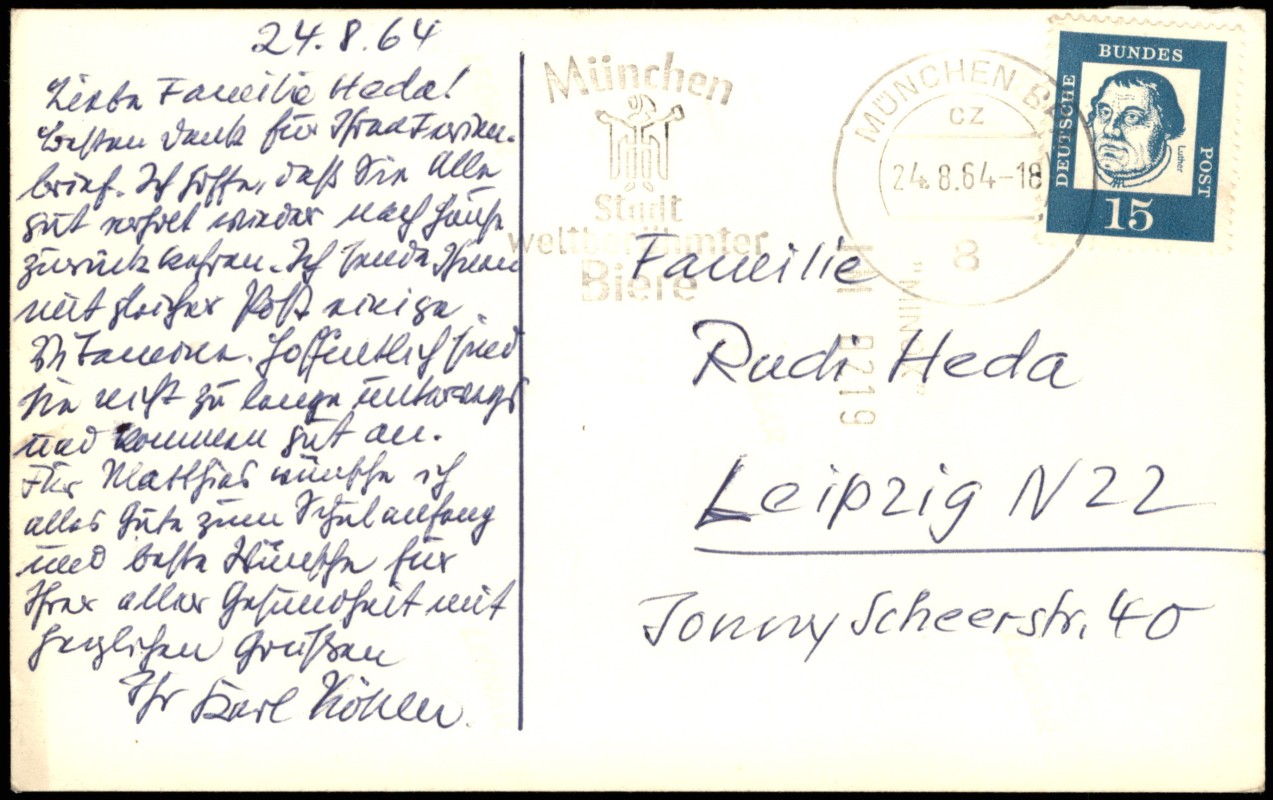 24.8.64
Liebe Familie Heda!
Besten Dank für Ihren Ferien-
brief. Ich hoffe, daß Sie Alle
gut erholt wieder nach Hause
zurückkehren. Ich sende Ihnen
mit gleicher Post einige
Vitamine. Hoffentlich sind
sie nicht zu lange unterwegs
und kommen gut an.
Für Matthias wünsche ich
alles Gute zum Schulanfang
und beste Wünsche für
Ihrer aller Gesundheit mit
herzlichen Grüßen
Ihr Karl Köhler.
München
Stadt
weltberühmter
Biere
MÜNCHEN B
CZ
24.8.64-18
8
DEUTSCHE
BUNDES
POST
Luther
15
Familie
Rudi Heda
Leipzig N22
Jonny Scheerstr. 40